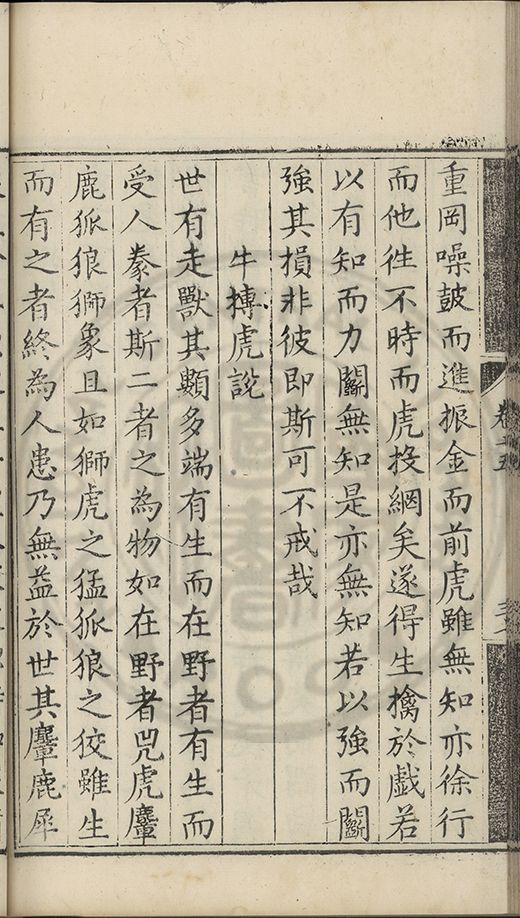 重岡噪鼓而進振金而前虎雖無知亦徐行
而他徃不時而虎投網矣遂得生擒於戯若
以有知而力鬬無知是亦無知若以強而鬬
強其損非彼即斯可不戒哉
牛摶虎說
世有走獸其類多端有生而在野者有生而
受人豢者斯二者之為物如在野者兕虎麞
鹿狐狼獅象且如獅虎之猛狐狼之狡雖生
而有之者終為人患乃無益於世其麞鹿犀